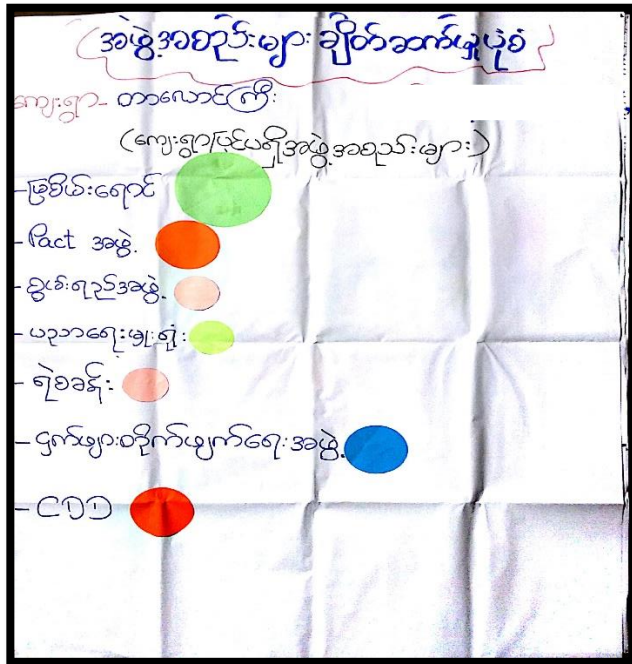 အဖွဲ့အစည်းများ ချိတ်ဆက်မှုပုံစံ
ကျေးရွာ- တာလောင်ကြီး
(ကျေးရွာပြင်ပရှိအဖွဲ့အစည်းများ)
-မြစိမ်းရောင်
-Pact အဖွဲ့
-စွမ်းရည်အဖွဲ့
-ပညာရေးမှူးရုံး
-ရဲစခန်း
-ငှက်ဖျားတိုက်ဖျက်ရေးအဖွဲ့
-CDD